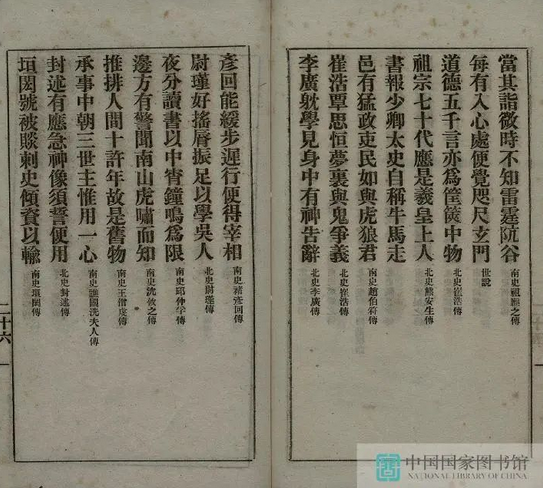 當其詣微時不知雷霆阬谷 南史祖暅之傳
每有入心處便覺咫尺玄門 世說
道德五千言亦為筐篋中物 北史崔浩傳
祖宗七十代應是羲皇上人 北史熊安生傳
書報少卿太史自稱牛馬走
邑有猛政吏民如與虎狼君 南史趙伯符傳
崔浩覃思恒夢裏與鬼爭義 北史崔浩傳
李廣躭學見身中有神告辭 北史李廣傳
彥回能緩步遲行便得宰相 南史褚彥回傳
尉瑾好搖脣振足以學吳人 北史尉瑾傳
夜分讀書以中宵鐘鳴為限 南史邱仲孚傳
邊方有警聞南山虎嘯而知 南史沈攸之傳
推排人間十許年故是舊物 南史王僧虔傳
承事中朝三世主惟用一心 南史譙國洗夫人傳
封述有應急神像須誓便用 北史封述傳
垣閎號被賧刺史傾資以輸 南史垣閎傳
二十六
中国国家图书馆
NATIONAL LIBRARY OF CHINA